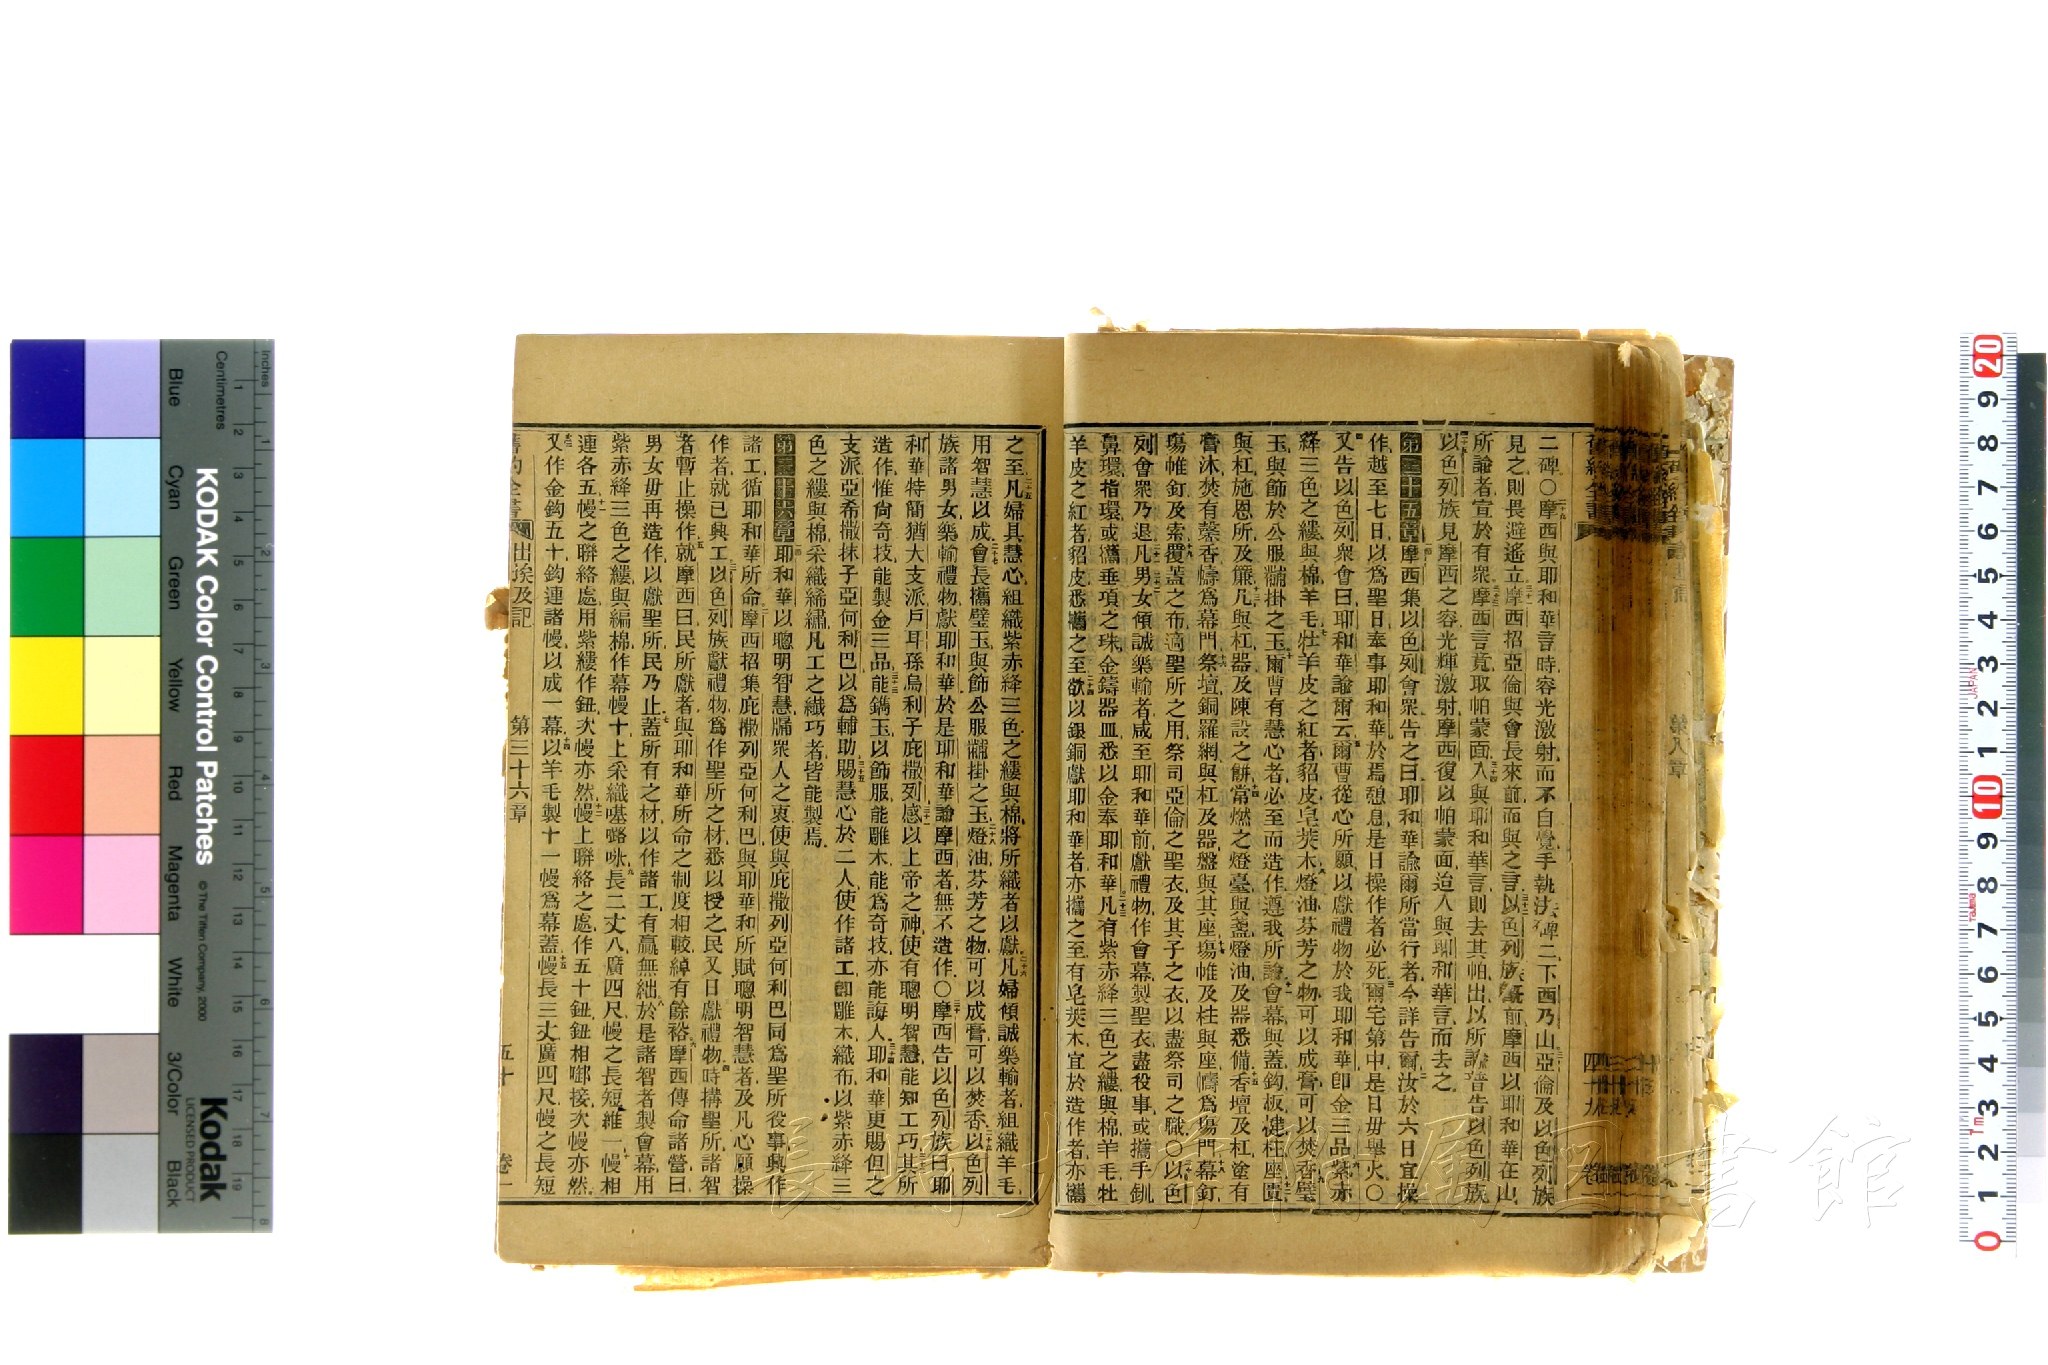 二碑○摩西與耶和華言時容光激射而不自覺手執法碑二下西乃山亞倫及以色列族
見之則畏避遙立摩西招亞倫與會長來前而與之言以色列族旣前摩西以耶和華在山
所諭者宣於有衆摩西言竟取帕蒙面入與耶和華言則去其帕出以所諭普告以色列族
以色列族見摩西之容光輝激射摩西復以帕蒙面迨入與耶和華言而去之
第三十五章摩西集以色列會衆告之曰耶和華諭爾所當行者今詳告爾汝於六日宜操
作越至七日以爲聖日奉事耶和華於焉憩息是日操作者必死爾宅第中是日毋舉火○
又告以色列衆會曰耶和華諭爾云爾曹從心所願以獻禮物於我耶和華卽金三品紫赤
絳三色之縷與棉羊毛牡羊皮之紅者貂皮皂莢木燈油芬芳之物可以成膏可以焚香璧
玉與飾於公服黼掛之玉爾曹有慧心者必至而造作遵我所諭會幕與蓋鈎板楗柱座匱
與杠施恩所及簾几與杠器及陳設之餅當燃之燈臺與盞燈油及器悉備香壇及杠塗有
膏沐焚有馨香幬爲幕門祭壇銅羅網與杠及器盤與其座塲帷及柱與座幬爲塲門幕釘
塲帷釘及索覆蓋之布適聖所之用祭司亞倫之聖衣及其子之衣以盡祭司之職○以色
列會衆乃退凡男女傾誠樂輸者咸至耶和華前獻禮物作會幕製聖衣盡役事或攜手釧
鼻環指環或攜垂項之珠金鑄器皿悉以金奉耶和華凡有紫赤絳三色之縷與棉羊毛牡
羊皮之紅者貂皮悉攜之至欲以銀銅獻耶和華者亦攜之至有皂莢木宜於造作者亦攜
之至凡婦具慧心組織紫赤絳三色之縷與棉將所織者以獻凡婦傾誠樂輸者組織羊毛
用智慧以成會長攜璧玉與飾公服黼掛之玉燈油芬芳之物可以成膏可以焚香以色列
族諸男女樂輸禮物獻耶和華於是耶和華諭摩西者無不造作○摩西告以色列族曰耶
和華特簡猶大支派戶耳孫烏利子庇撒列感以上帝之神使有聰明智慧能知工巧其所
造作惟尙奇技能製金三品能鐫玉以飾服能雕木能爲奇技亦能誨人耶和華更賜但之
支派亞希撒抹子亞何利巴以爲輔助賜慧心於二人使作諸工卽雕木織布以紫赤絳三
色之縷與棉采織絺繡凡工之纖巧者皆能製焉
第三十六章耶和華以聰明智慧牖衆人之衷使與庇撒列亞何利巴同爲聖所役事興作
諸工循耶和華所命摩西招集庇撒列亞何利巴與耶華和所賦聰明智慧者及凡心願操
作者就已興工以色列族獻禮物爲作聖所之材悉以授之民又日獻禮物時搆聖所諸智
者暫止操作就摩西曰民所獻者與耶和華所命之制度相較綽有餘裕摩西傳命諸營曰
男女毋再造作以獻聖所民乃止蓋所有之材以作諸工有贏無絀於是諸智者製會幕用
紫赤絳三色之縷與編棉作幕幔十上采織𡀔𡅏㖠長二丈八廣四尺幔之長短維一幔相
連各五幔之聯絡處用紫縷作鈕次幔亦然幔上聯絡之處作五十鈕鈕相啣接次幔亦然
又作金鈎五十鈎連諸幔以成一幕以羊毛製十一幔爲幕蓋幔長三丈廣四尺幔之長短
舊約全書 出埃及記 第三十六章 五十 卷一
KODAK Color Control Patches
© The Tiffen Company, 2000
Kodak
LICENSED PRODUCT
Inches
Centimetres
Blue
Cyan
Green
Yellow
Red
Magenta
White
3/Color
Black
長崎大学附属図書館